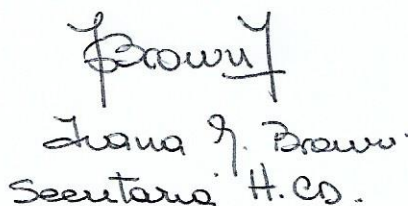 Brown
Ivana G. Brown.
Secretaria H.CD.